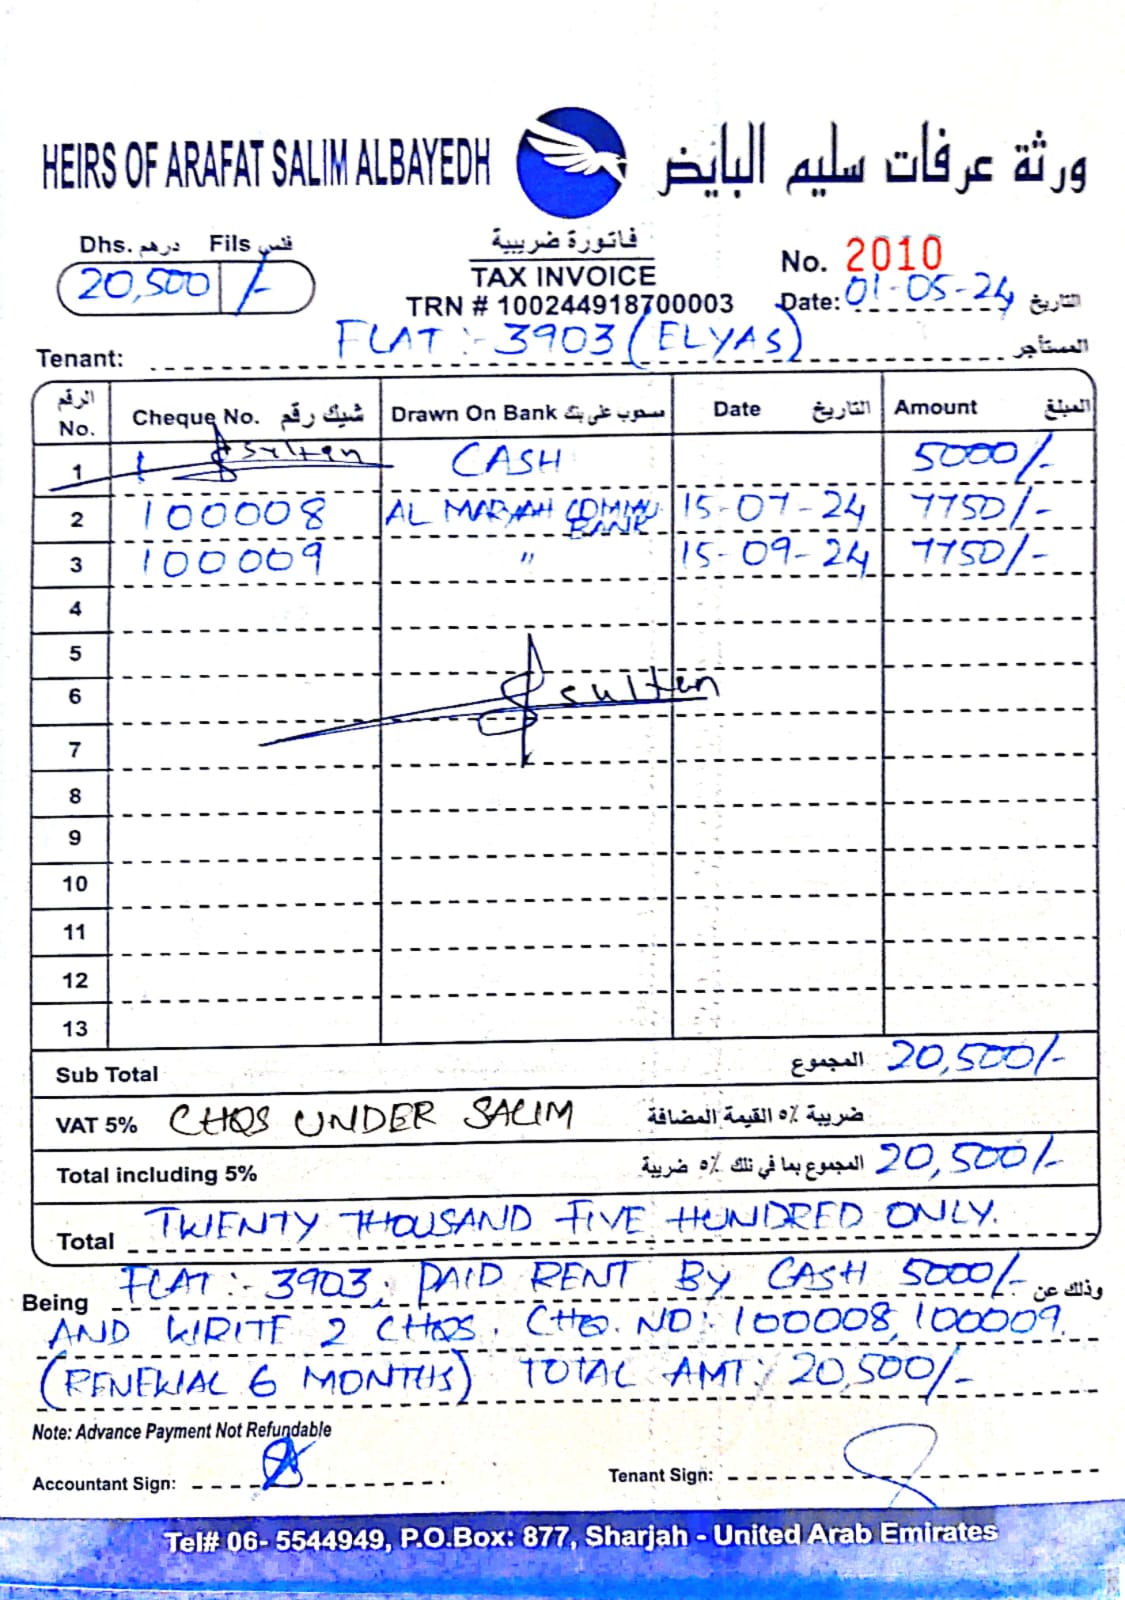 HEIRS OF ARAFAT SALIM ALBAYEDH ورثة عرفات سليم البايض
Dhs. درهم Fils فلس
20,500 /-
فاتورة ضريبية
TAX INVOICE
TRN # 100244918700003
No. 2010
Date: 01-05-24 التاريخ
Tenant: FLAT :- 3903 (ELYAS) المستأجر
الرقم No. Cheque No. شيك رقم Drawn On Bank مسحوب على بنك Date التاريخ Amount المبلغ
1 sultan CASH 5000/-
2 100008 AL MARYAH COMMU. BANK 15-07-24 7750/-
3 100009 " 15-09-24 7750/-
4
5
6 sultan
7
8
9
10
11
12
13
Sub Total المجموع 20,500/-
VAT 5% CHQS UNDER SALIM ضريبة ٥% القيمة المضافة
Total including 5% المجموع بما في ذلك ٥% ضريبة 20,500/-
Total TWENTY THOUSAND FIVE HUNDRED ONLY.
Being FLAT :- 3903, PAID RENT BY CASH 5000/- وذلك عن
AND WRITE 2 CHQS. CHQ. NO:- 100008, 100009.
(RENEWAL 6 MONTHS) TOTAL AMT:- 20,500/-
Note: Advance Payment Not Refundable
Accountant Sign: Tenant Sign:
Tel# 06- 5544949, P.O.Box: 877, Sharjah - United Arab Emirates